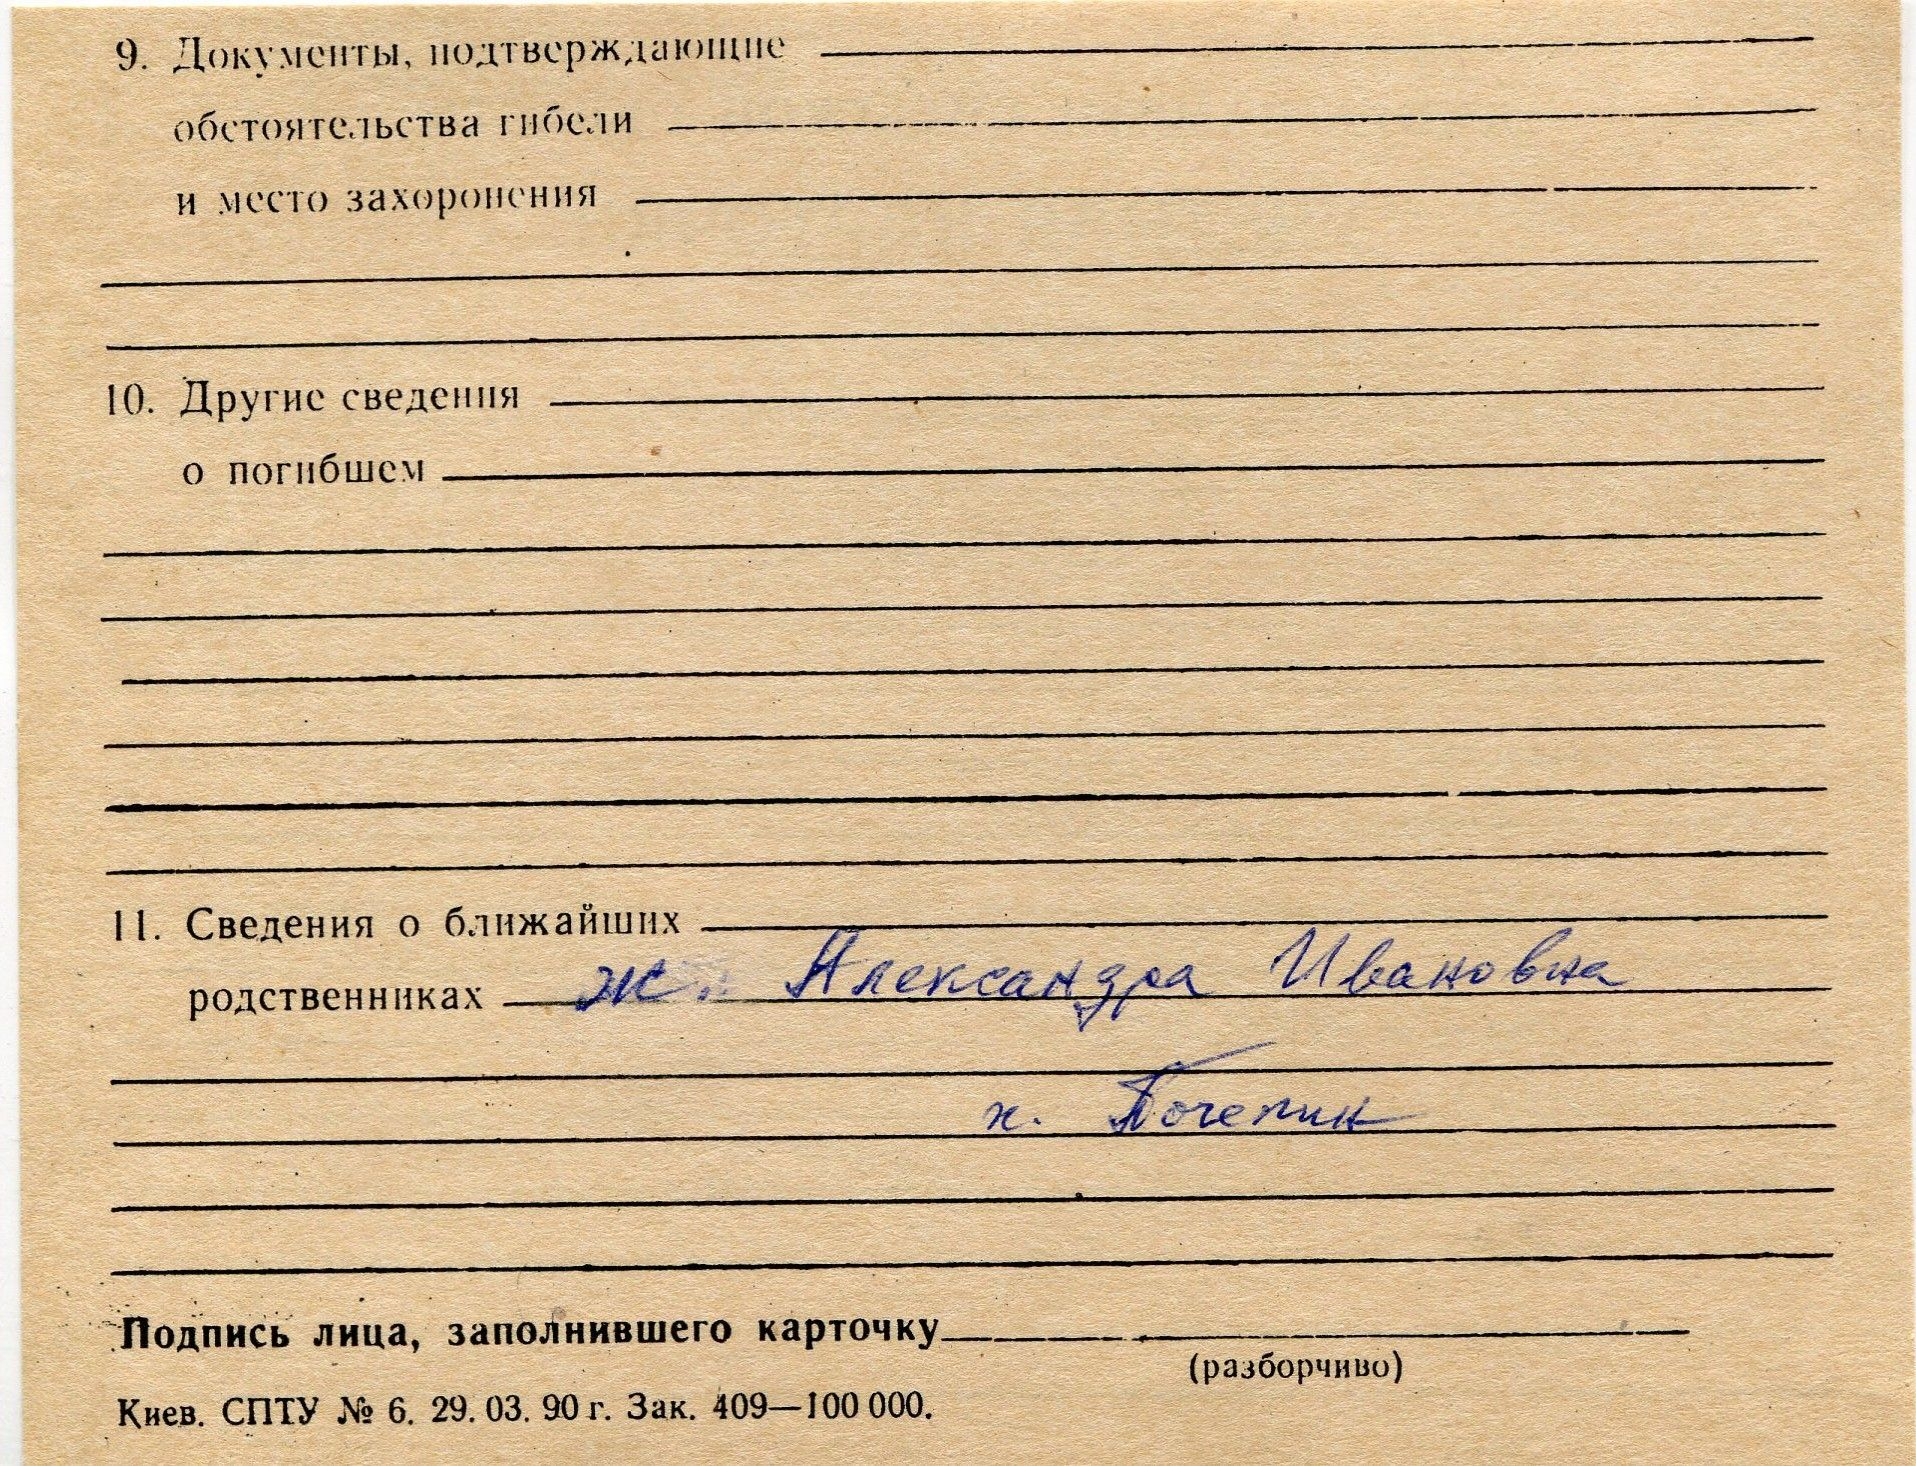 9. Документы, подтверждающие
обстоятельства гибели
и место захоронения
10. Другие сведения
о погибшем
11. Сведения о ближайших
родственниках ж. Александра Ивановна
х. Почепин
Подпись лица, заполнившего карточку
(разборчиво)
Киев. СПТУ № 6. 29. 03. 90 г. Зак. 409—100 000.